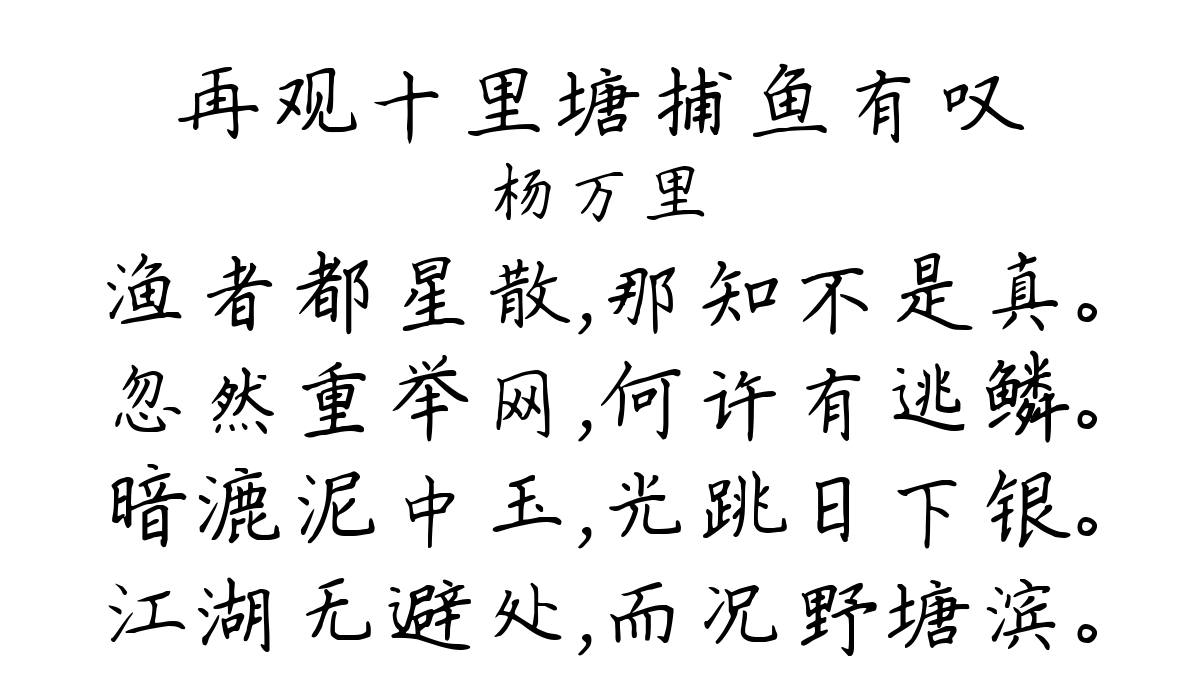 再观十里塘捕鱼有叹
杨万里
渔者都星散,那知不是真。
忽然重举网,何许有逃鳞。
暗漉泥中玉,光跳日下银。
江湖无避处,而况野塘滨。